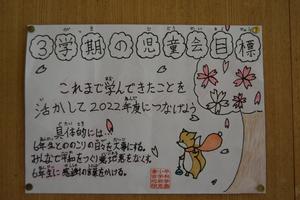 3学期の児童会目標
これまで学んできたことを
活かして2022年度につなげよう
具体的には…
6年生とののこりの日々を大事にする。
みんなで平和をつくり
6年生に感謝の言葉をかける。